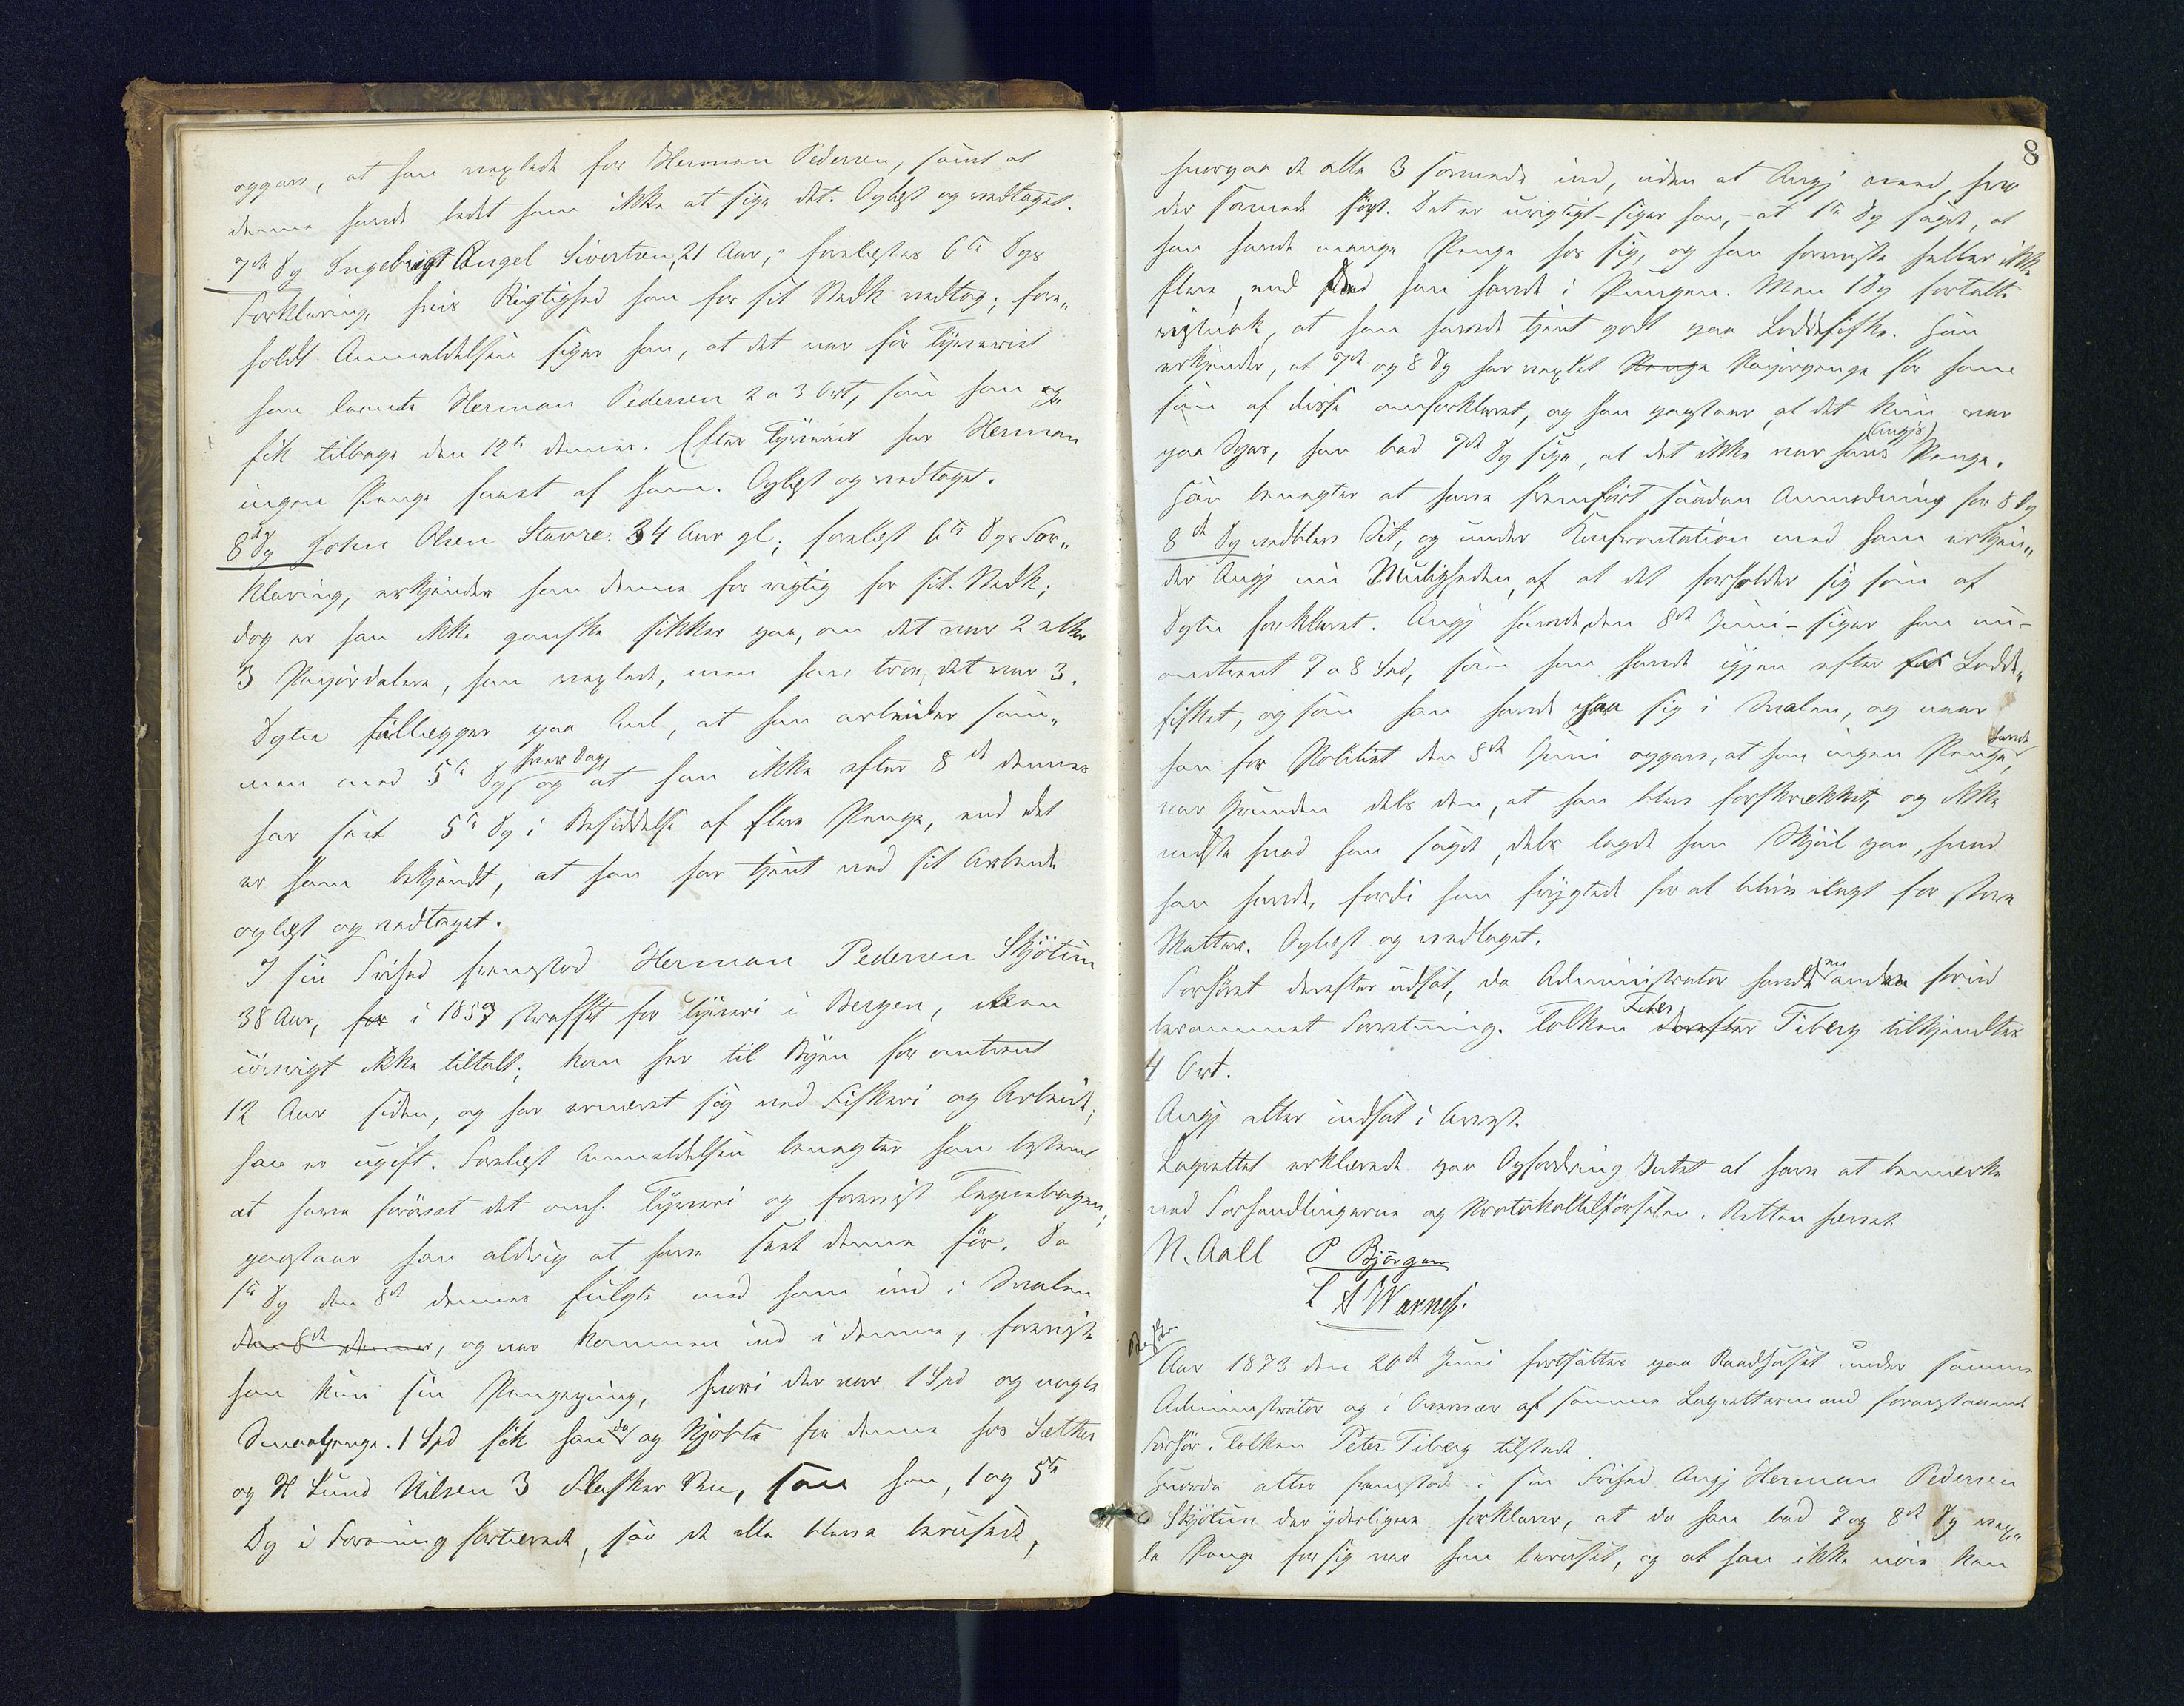 opgav, at han vexlede for Herman Pedersen, samt at
denne havde bedt ham ikke at sige det. Oplæst og vedtaget.
7de Vg Ingebrigt Angel Sivertsen, 21 Aar, forelæstes 6te Vgs
Forklaring, hvis Rigtighed han for sit Vedk vedtog; fore„
holdt Anmeldelsen siger han, at det var før Tyveriet
han laante Herman Pedersen 2 a 3 Ort, som han
fik tilbage den 12te dennes. Efter Tyveriet har Herman
ingen Penge faaet af ham. Oplæst og vedtaget.
8de Vg John Olsen Stavre. 34 Aar gl; forelæst 6te Vgs For„
klaring, erkjender han denne for rigtig for sit Vedk;
dog er han ikke ganske sikker paa, om det var 2 eller
3 Papirdalere, han vexlede, men han tror, det var 3.
Vgtn tillægger paa Anl, at han arbeider sam„
men med 5te Vg hver Dag, og at han ikke efter 8de dennes
har seet 5te Vg i Besiddelse af flere Penge, end det
er ham bekjendt, at han har tjent ved sit Arbeide
oplæst og vedtaget.
I sin Frihed fremstod Herman Pedersen Skjötun
38 Aar, for i 1857 straffet for Tyveri i Bergen, men
iövrigt ikke tiltalt; kom her til Byen for omtrent
12 Aar siden, og har ernæret sig ved Fiskeri og Arbeide;
han er ugift. Forelæst Anmeldelsen benegter han bestemt
at have forövet det omh. Tyveri og forevist Tegnebogen,
paastaar han aldrig at have seet denne før. Da
1te Vg den 8de dennes fulgte med ham ind i Svalen
den 8de dennes, og var kommen ind i denne, foreviste
han kun sin Pengepung, hvori der var 1 Spd og nogle
Smaapenge. 1 Spd fik han da og kjøbte for denne hos Sæther
og H Lund Nilsen 3 Flasker Vin, som han, 1 og 5te
Vg i Forening fortærede, saa de alle bleve berusede,
8
hvorpaa de alle 3 sovnede ind, uden at Angj veed, hvo
der sovnede først. Det er urigtigt – siger han, – at 1te Vg sagde, at
han havde mange Penge hos sig, og han foreviste heller ikke
flere, end hvad han havde i Pungen. Men 1 Vg fortalte
rigtnok, at han havde tjent godt paa Loddefiske. Han
erkjender, at 7de og 8 Vg har vexlet Penge Papirpenge for ham
som af disse omforklaret, og han paastaar, at det kun var
paa Spøg, han bad 7de Vg sige, at det ikke var hans (Angjs) Penge.
Han benegter at have fremført saadan Anmodning for 8 Vg
8de Vg vedblev Sit, og under Konfrontation med ham erkjen„
der Angj nu Muligheden af at det forholder sig som af
Vgtn forklaret. Angj havde, den 8de Juni – siger han nu –
omtrent 7 a 8 Spd, som han havde igjen efter Lodde„
fisket, og som han havde paa sig i Svalen, og naar
han for Politiet den 8de Juni opgav, at han ingen Penge havde,
var Grunden dels den, at han blev forskrækket, og ikke
vidste hvad han sagde, dels lagde han Skjul paa, hvad
han havde, fordi han frygtede for at blive ilagt for store
Skatter. Oplæst og vedtaget.
Forhøret derefter udsat, da Administrator havde en anden forud
berammet Forretning. Tolken Peter derefter Tiberg tilkjendtes
4 Ort.
Angj atter indsat i Arrest.
Lagrettet erklærede paa Opfordring Intet at have at bemærke
ved Forhandlingerne og Protokoltilførselen. Retten hævet
N. Aall P Bjørgum
L A Warnes.
Aar 1873 den 20de Juni fortsattes paa Raadhuset under samme
Administrator og i Overvær af samme Lagrettesmænd foranstaaende
Forhør. Tolken Peter Tiberg tilstede
Hvorda atter fremstod i sin Frihed Angj Herman Pedersen
Skjötun der yderligere forklarer, at da han bad 7 og 8de Vg vex„
le Penge for sig var han beruset, og at han ikke nøie kan